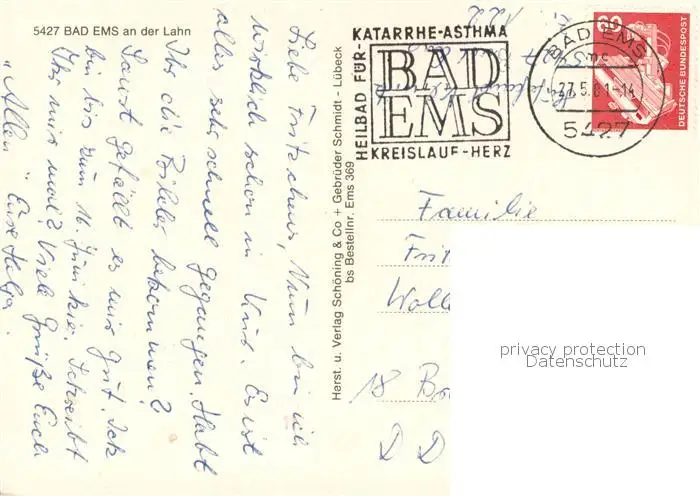 5427 BAD EMS an der Lahn
Liebe Fritschns, Nun bin ich
wirklich schon in Kur. Es ist
alles sehr schnell gegangen. Habt
Ihr die Bilder bekommen?
Sonst gefällt es mir gut. Ich
bin bis zum 16. Juni hier. Schreibt
Ihr mir mal? Viele Grüße Euch
"Allen" Eure Helga.
Herst. u. Verlag Schöning & Co + Gebrüder Schmidt - Lübeck
bs Bestellnr. Ems 369
HEILBAD FÜR-
KATARRHE-ASTHMA
BAD
EMS
KREISLAUF-HERZ
BAD EMS
27.5.81-14
5427
60
DEUTSCHE BUNDESPOST
Familie
Frit
Woll
18
D D
privacy protection
Datenschutz